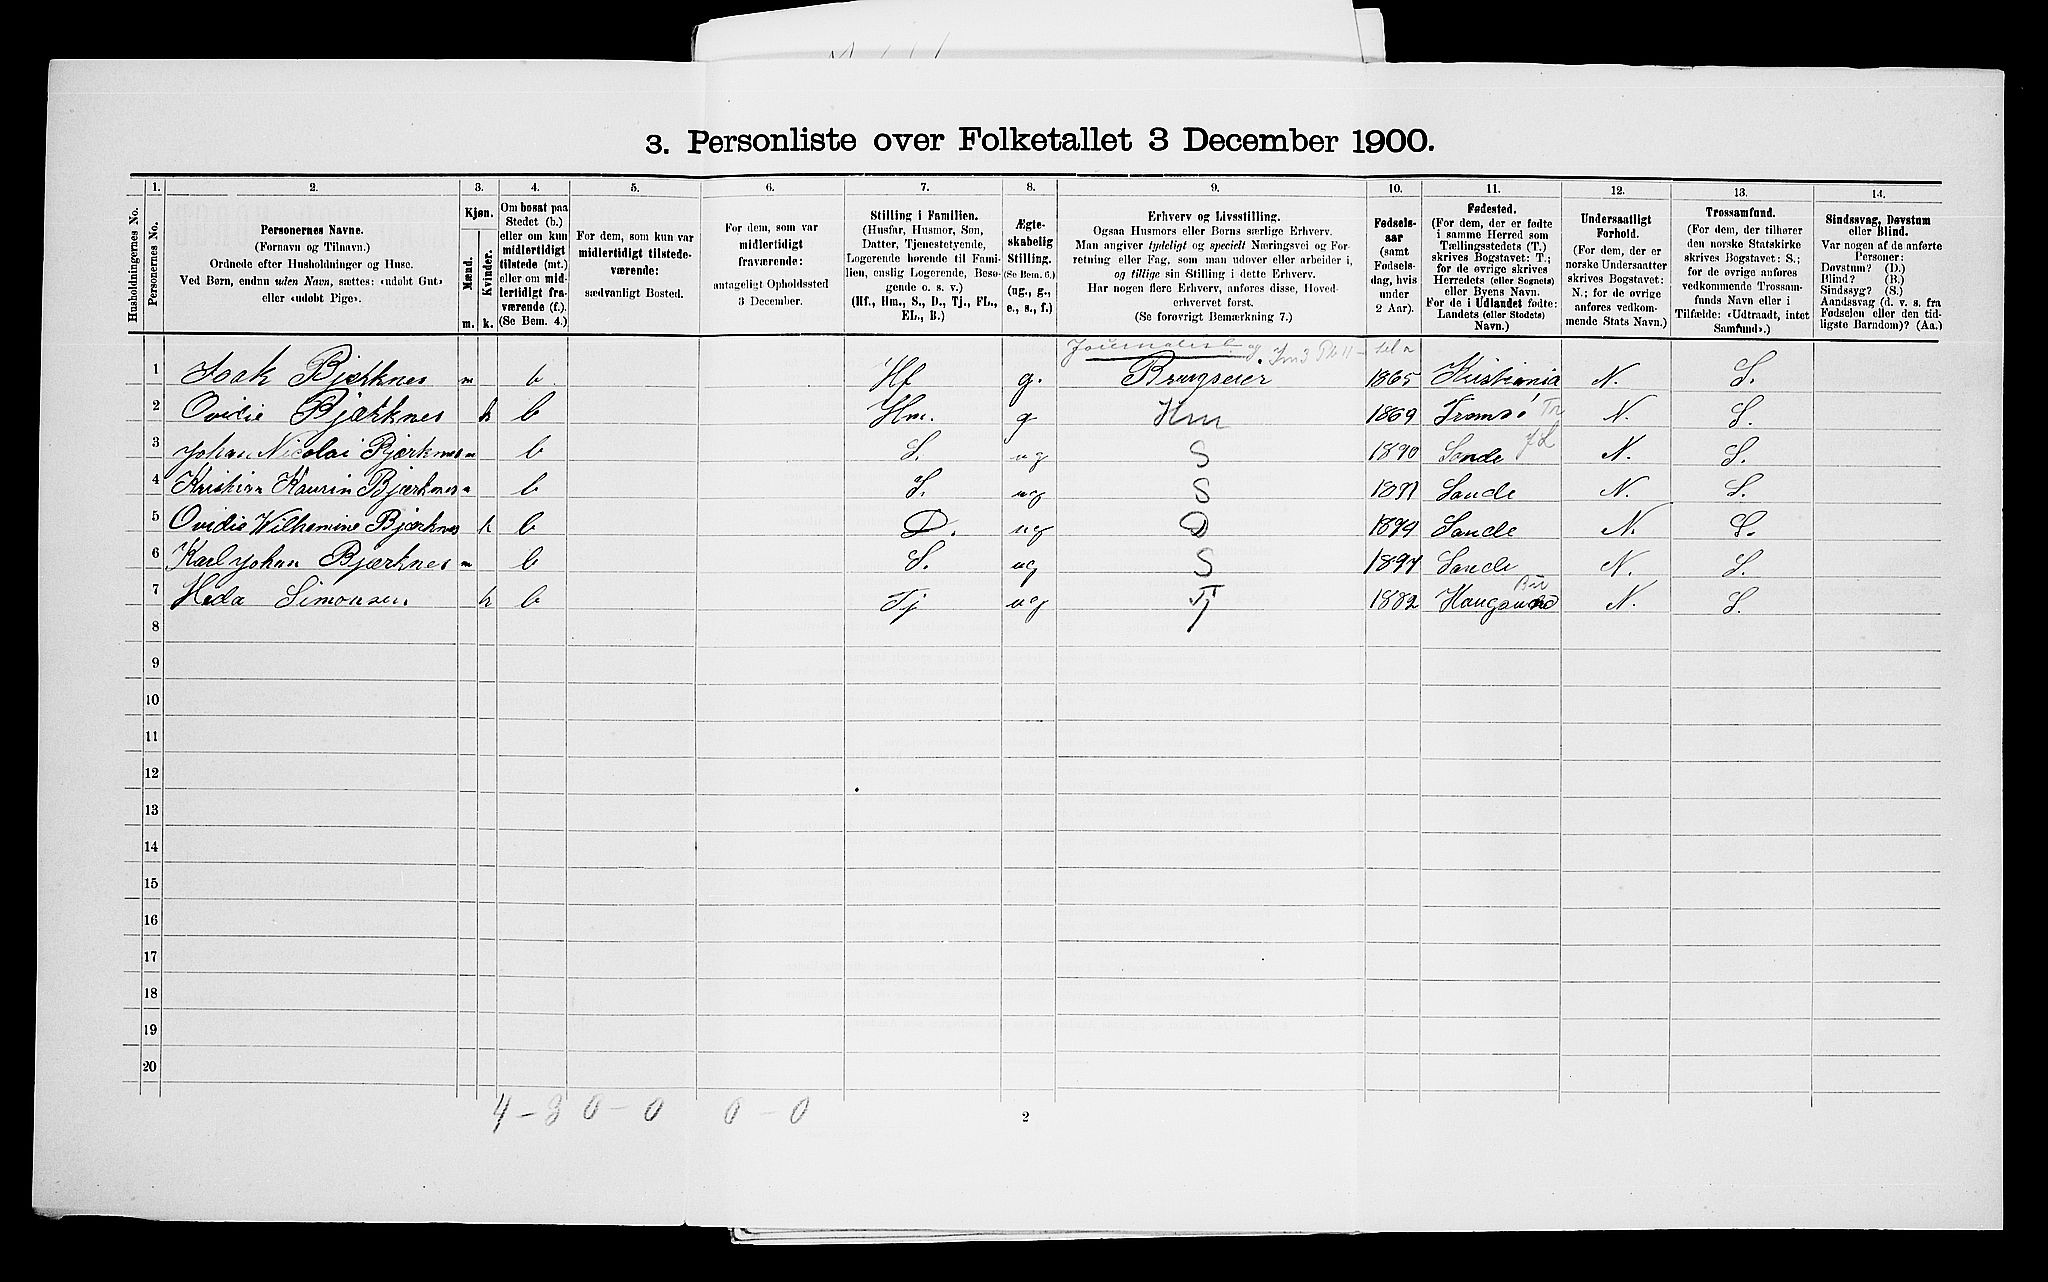 3. Personliste over Folketallet 3 December 1900.
1. 2. 3. 4. 5. 6. 7. 8. 9. 10. 11. 12. 13. 14.
Husholdningernes No.
Personernes No.
Personernes Navne.
(Fornavn og Tilnavn.)
Ordnede efter Husholdninger og Huse.
Ved Børn, endnu uden Navn, sættes: «udøbt Gut»
eller «udøbt Pige».
Kjøn.
Mænd.
Kvinder.
m. k.
Om bosat paa
Stedet (b.)
eller om kun
midlertidigt
tilstede (mt.)
eller om mid-
lertidigt fra-
værende (f.).
(Se Bem. 4.)
For dem, som kun var
midlertidigt tilstede-
værende:
sædvanligt Bosted.
For dem, som var
midlertidigt
fraværende:
antageligt Opholdssted
3 December.
Stilling i Familien.
(Husfar, Husmor, Søn,
Datter, Tjenestetyende,
Logerende hørende til Fami-
lien, enslig Logerende, Besø-
gende o. s. v.)
(Hf., Hm., S., D., Tj., FL.,
EL., B.)
Ægte-
skabelig
Stilling.
(Se Bem. 6.)
(ug., g.,
e., s., f.)
Erhverv og Livsstilling.
Ogsaa Husmors eller Børns særlige Erhverv.
Man angiver tydeligt og specielt Næringsvei og For-
retning eller Fag, som man udøver eller arbeider i,
og tillige sin Stilling i dette Erhverv.
Har nogen flere Erhverv, anføres disse, Hoved-
erhvervet først.
(Se forøvrigt Bemærkning 7.)
Fødsels-
aar
(samt
Fødsels-
dag, hvis
under
2 Aar).
Fødested.
(For dem, der er fødte
i samme Herred som
Tællingsstedets (T.)
skrives Bogstavet: T.;
for de øvrige skrives
Herredets (eller Sognets)
eller Byens Navn.
For de i Udlandet fødte:
Landets (eller Stedets)
Navn.)
Undersaatligt
Forhold.
(For dem, der er
norske Undersaatter
skrives Bogstavet:
N.; for de øvrige
anføres vedkom-
mende Stats Navn.)
Trossamfund.
(For dem, der tilhører
den norske Statskirke
skrives Bogstavet: S.;
for de øvrige anføres
vedkommende Trossam-
funds Navn eller i
Tilfælde: «Udtraadt, intet
Samfund».)
Sindssvag, Døvstum
eller Blind.
Var nogen af de anførte
Personer:
Døvstum? (D.)
Blind? (B.)
Sindssyg? (S.)
Aandssvag (d. v. s. fra
Fødselen eller den tid-
ligste Barndom)? (Aa.)
Journalist og
1 Isak Bjærknes m b Hf g. Brugseier 1865 Kristiania N. S.
2 Ovidie Bjærknes k b Hm. g Hm 1869 Tromsø Tr N. S.
3 Johan Nicolai Bjærknes m b S. ug S 1890 Sande JL N. S.
4 Kristian Kaurin Bjærknes m b S. ug S 1891 Sande N. S.
5 Ovidie Wilhemine Bjærknes k b D. ug D 1894 Sande N. S.
6 Karl Johan Bjærknes m b S. ug S 1897 Sande N. S.
7 Heda Simonsen k b Tj ug Tj 1882 Haugsund Bu N. S.
8
9
10
11
12
13
14
15
16
17
18
19
20
4 - 3 0 - 0 0 - 0
2